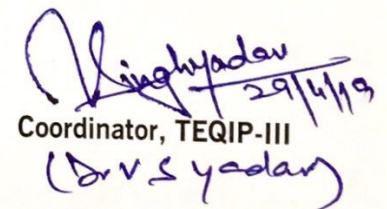 Singhyadav
29/4/19
Coordinator, TEQIP-III
(Dr V S yadav)